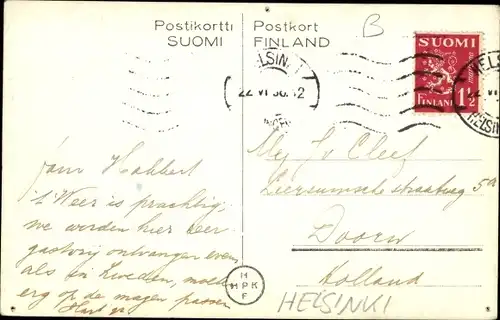 Postikortti
SUOMI
Postkort
FINLAND
B
HELSINKI
22. VI 36. 12
SUOMI
FINLAND 1½
markkaa
HELSINKI
22. VI
HELSINKI
Mej J v Cleef
Leersumsche straatweg 5a
Doorn
Holland
't Weer is prachtig,
we worden hier zeer
gastvrij ontvangen even
als in Zweden, moet
erg op de magen passen
Hart gr.
H
HPK
F
HELSINKI